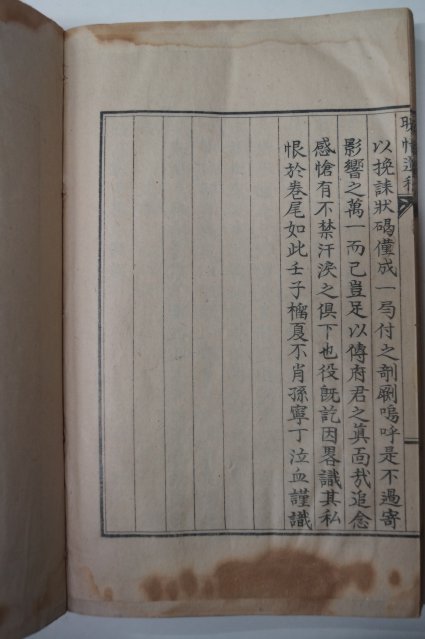 以挽誄狀碣僅成一局付之剞劂嗚呼是不過寄
影響之萬一而已豈足以傳府君之眞面哉追念
感愴有不禁汗淚之俱下也役旣訖因畧識其私
恨於卷尾如此壬子榴夏不肖孫寧丁泣血謹識